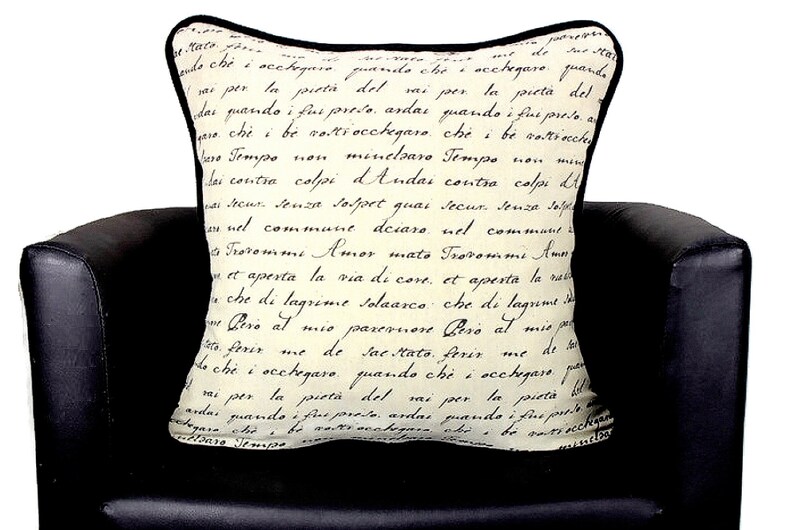 parerr
sae Stato. ferir me de sae Stato ferir me de sae stat
ndo chè i occhegaro. quando chè i occhegaro. quando
rai per la pietà del rai per la pietà del
dai quando i fui preso. ardai quando i fui preso. a
garo. chè i bè vostri occhegaro. chè i bè vostri occhegaro.
baro Tempo non minelbaro Tempo non min
dai contra colpi dAndai contra colpi dA
uai secur. senza sospet guai secur. senza sospet
nel commune dciaro. nel commune
Trovommi Amor mato Trovommi Amor
et aperta la via di core. et aperta la via
che di lagrime solaarco. che di lagrime
me Però al mio parernore Però al mio
to. ferir me de sae stato. ferir me de sae
do chè i occhegaro. quando chè i occhegaro. quan
rai per la pietà del rai per la pietà del
ardai quando i fui preso. ardai quando i fui preso.
occhegaro. chè i bè vostri occhegaro. chè i bè vostri occhegaro
minelbaro Tempo non minelbaro Tempo